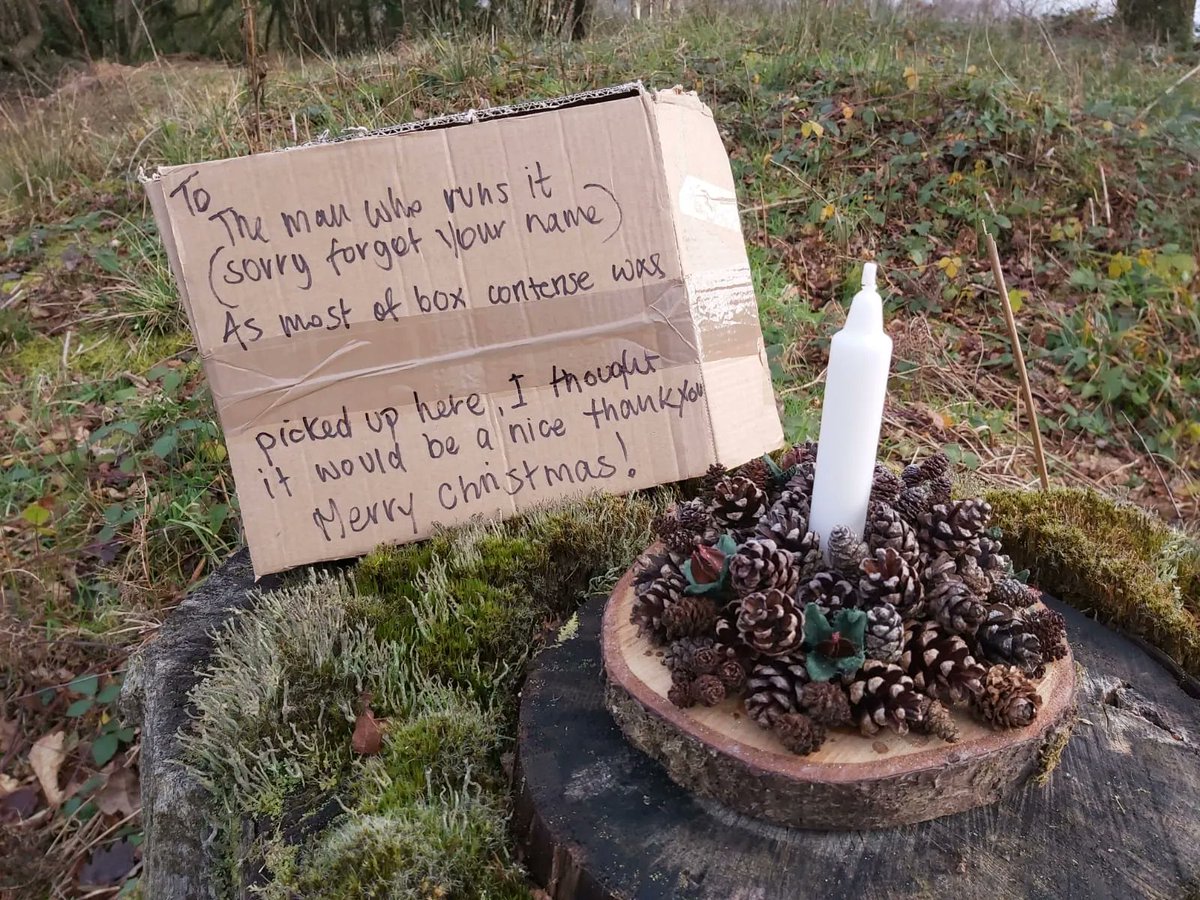 To
The man who runs it
(sorry forget your name)
As most of box contense was
picked up here, I thought
it would be a nice thankyou
Merry christmas!